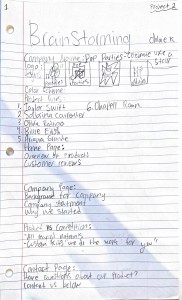 1
Project 2
BrainStorming
Company Name: Pop Parties - Celebrate like a Star
logo
Color Scheme
Product Line:
1. Taylor Swift 6. Chappell Roan
2. Sabrina Carpenter
3. Olivia Rodrigo
4. Billie Eilish
5. Ariana Grande
Home Page:
Overview of products
Customer reviews
Company Page:
Background for company
Company statement
Why we started
"All music genres
-Custom Kits: we do the work for you"
Contact Page:
Have questions about our Product?
Contact us below